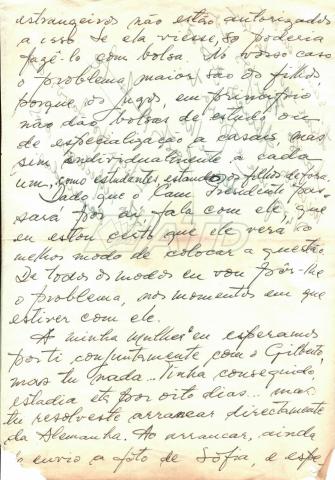 estrangeiros não estão autorizados
a isso. Se ela viesse, só poderia
fazê-lo com bolsa. No vosso caso
o problema maior são os filhos
porque os jugos, em princípio
não dão bolsas de estudo ou
de especialização a casais mas
sim individualmente a cada
um, como estudantes estando os filhos de fora.
Dado que o Cam. Presidente pas-
sará por aí, fala com ele, que
eu estou certo que ele verá o
melhor modo de colocar a questão.
De todos os modos eu vou pôr-lhe
o problema, nos momentos em que
estiver com ele.
A minha mulher e eu esperamos
por ti conjuntamente com o Gilberto,
mas tu nada... Tinha conseguido
estadia etc por oito dias... mas
tu resolveste arrancar directamente
da Alemanha. Ao arrancar, ainda
envio a foto de Sófia, e espe